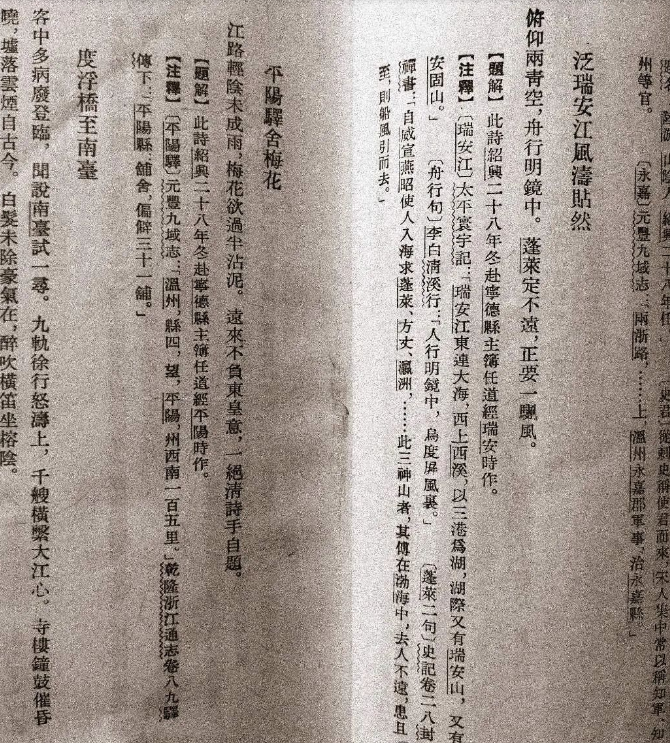 州等官。 〔永嘉〕元豐九域志：「兩浙路，……上，溫州永嘉郡軍事，治永嘉縣。」
泛瑞安江風濤貼然
俯仰兩青空，舟行明鏡中。蓬萊定不遠，正要一颿風。
【題解】 此詩紹興二十八年冬赴寧德縣主簿任道經瑞安時作。
【注釋】 〔瑞安江〕太平寰宇記：「瑞安江東連大海，西上西溪，以三港爲湖，湖際又有瑞安山，又有
安固山。」 〔舟行句〕李白清溪行：「人行明鏡中，鳥度屏風裏。」 〔蓬萊二句〕史記卷二八封
禪書：「自威宣燕昭使人入海求蓬萊、方丈、瀛洲，……此三神山者，其傳在渤海中，去人不遠，患且
至，則船風引而去。」
平陽驛舍梅花
江路輕陰未成雨，梅花欲過半沾泥。遠來不負東皇意，一絕清詩手自題。
【題解】 此詩紹興二十八年冬赴寧德縣主簿任道經平陽時作。
【注釋】 〔平陽驛〕元豐九域志：「溫州，縣四，望，平陽，州西南一百五里。」乾隆浙江通志卷八九驛
傳下：「平陽縣，舖舍，偏僻三十一舖。」
度浮橋至南臺
客中多病廢登臨，聞說南臺試一尋。九軌徐行怒濤上，千艘橫繫大江心。寺樓鐘鼓催昏
曉，墟落雲煙自古今。白髮未除豪氣在，醉吹橫笛坐榕陰。